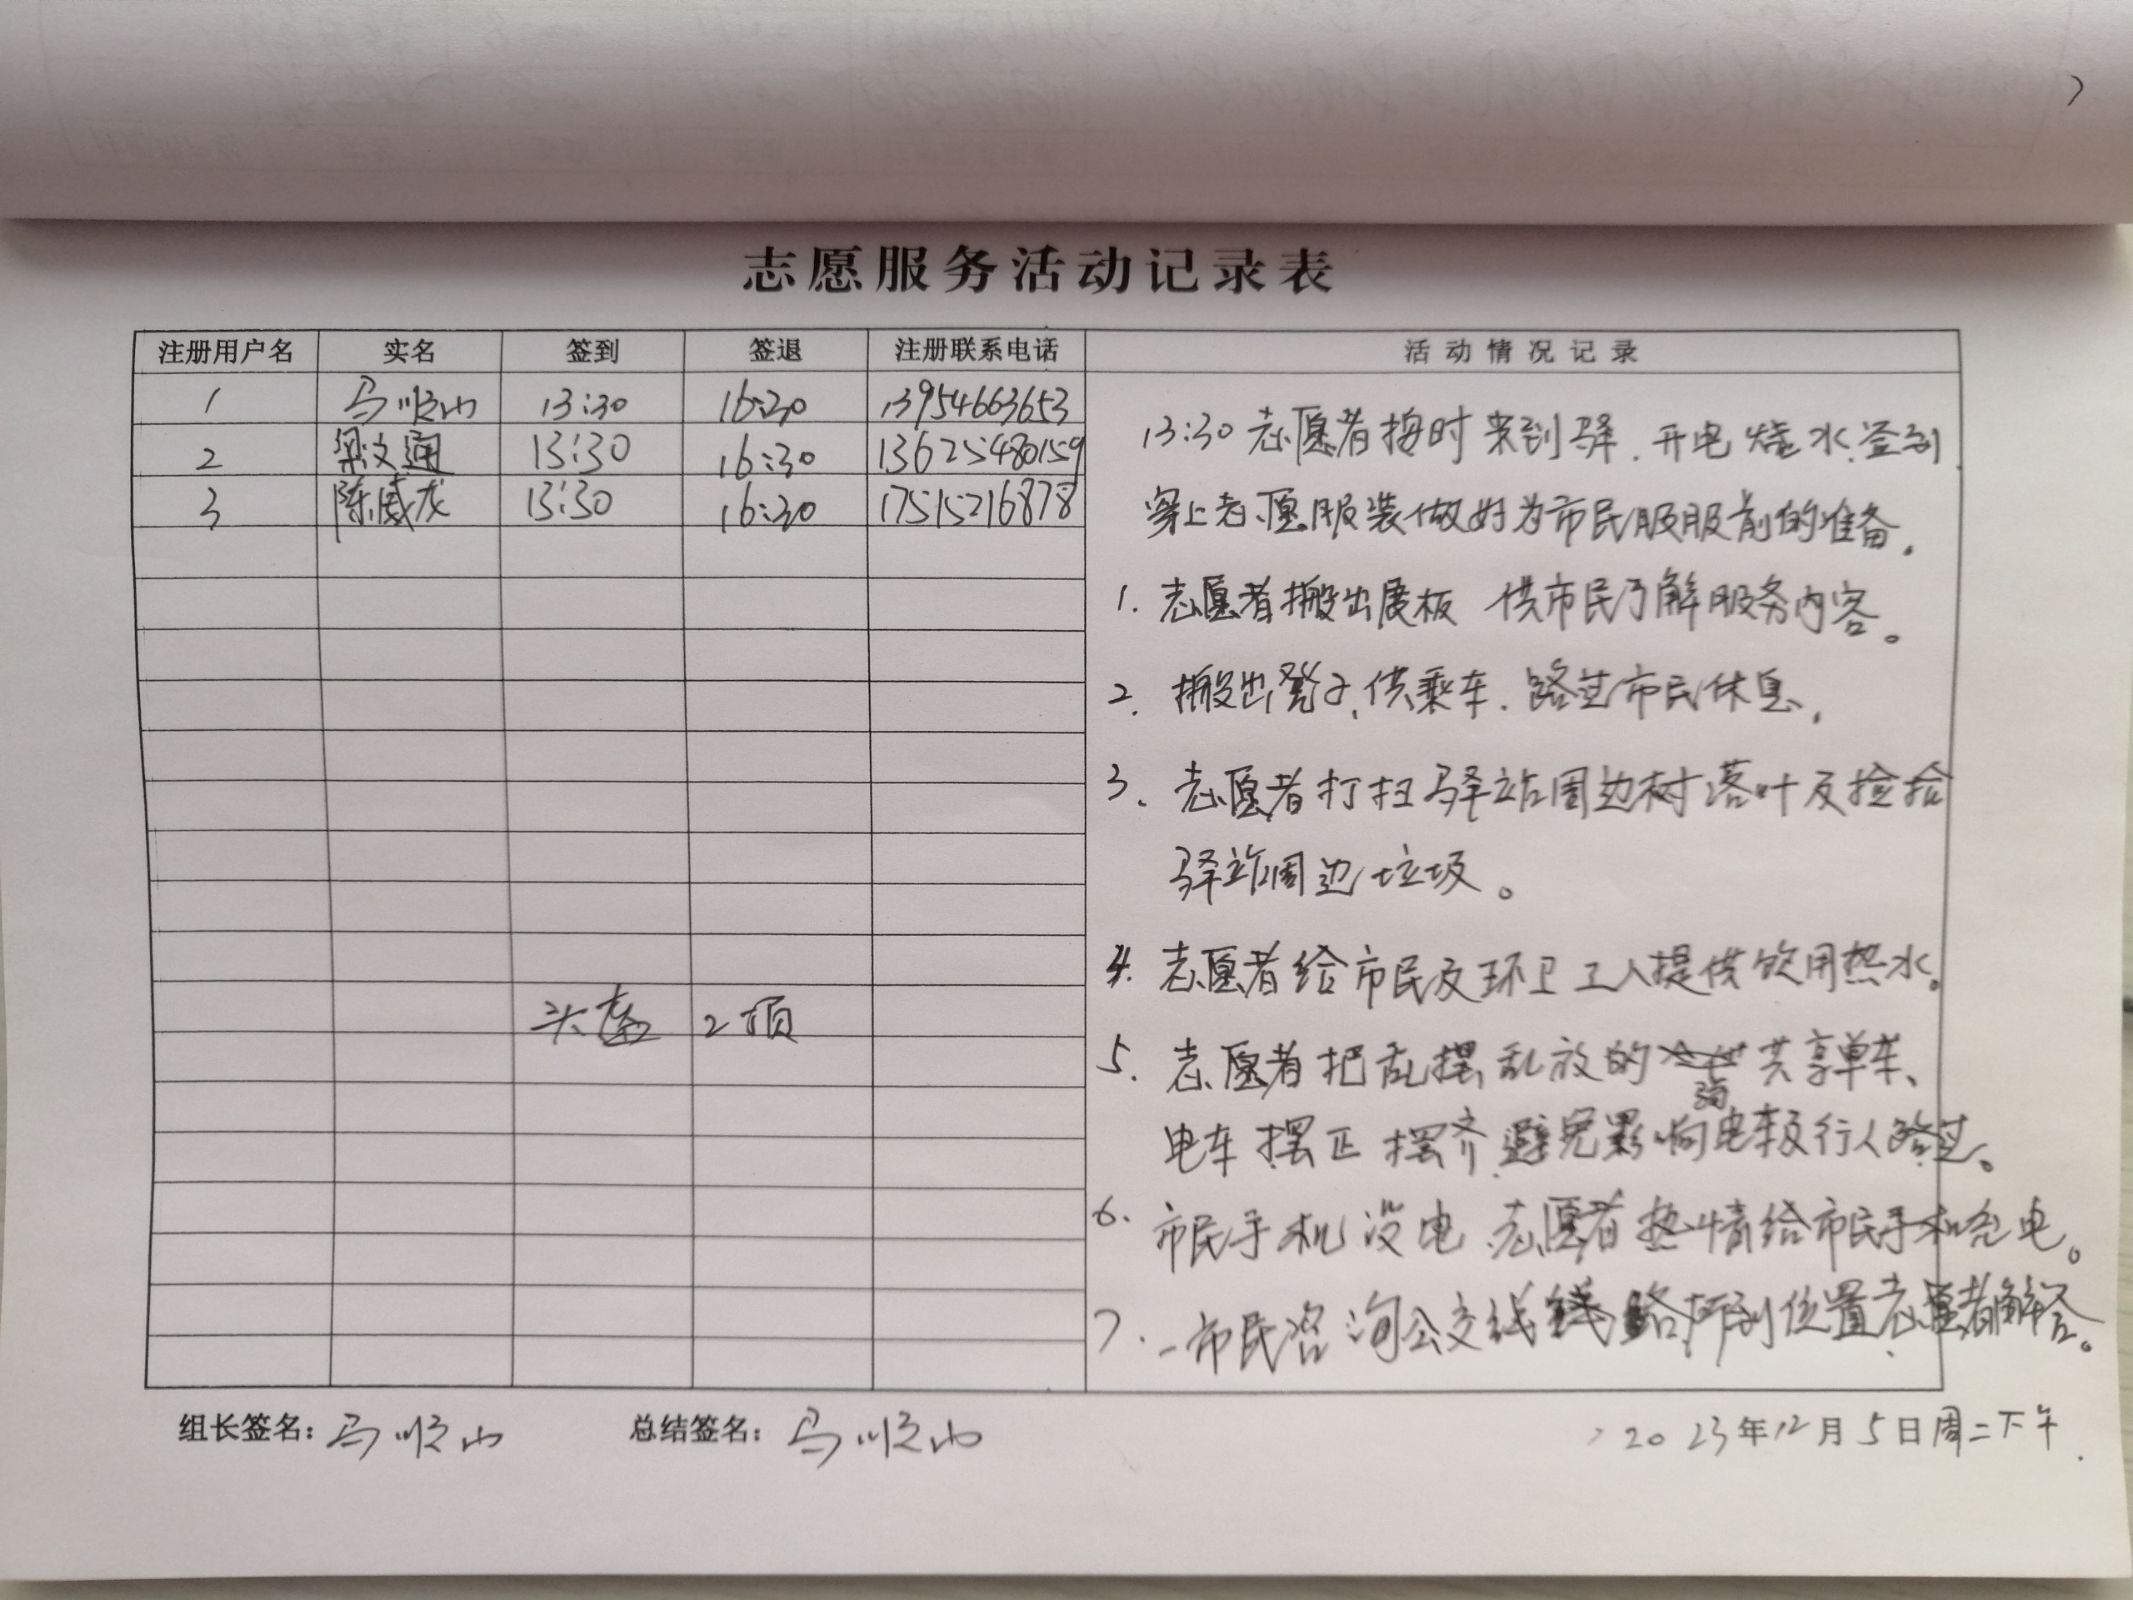 志愿服务活动记录表
注册用户名 实名 签到 签退 注册联系电话 活动情况记录
1 马顺山 13:30 16:30 13954663653
2 梁文通 13:30 16:30 13625480159
3 陈威龙 13:30 16:30 17515216878
头盔 2顶
13:30志愿者按时来到驿.开电烧水.签到
穿上志愿服装做好为市民服服前的准备.
1.志愿者搬出展板 供市民了解服务内容。
2.搬出凳子,供乘车.路过市民休息.
3.志愿者打扫驿站周边树落叶及捡拾
驿站周边垃圾。
4.志愿者给市民及环卫工人提供饮用热水。
5.志愿者把乱摆乱放的共享单车、
电车摆正摆齐.避免影响电车及行人路过。
6.市民手机没电.志愿者热情给市民手机充电。
7.一市民咨询公交线路所到位置.志愿者解答。
组长签名:马顺山 总结签名:马顺山 2023年12月5日周二下午.